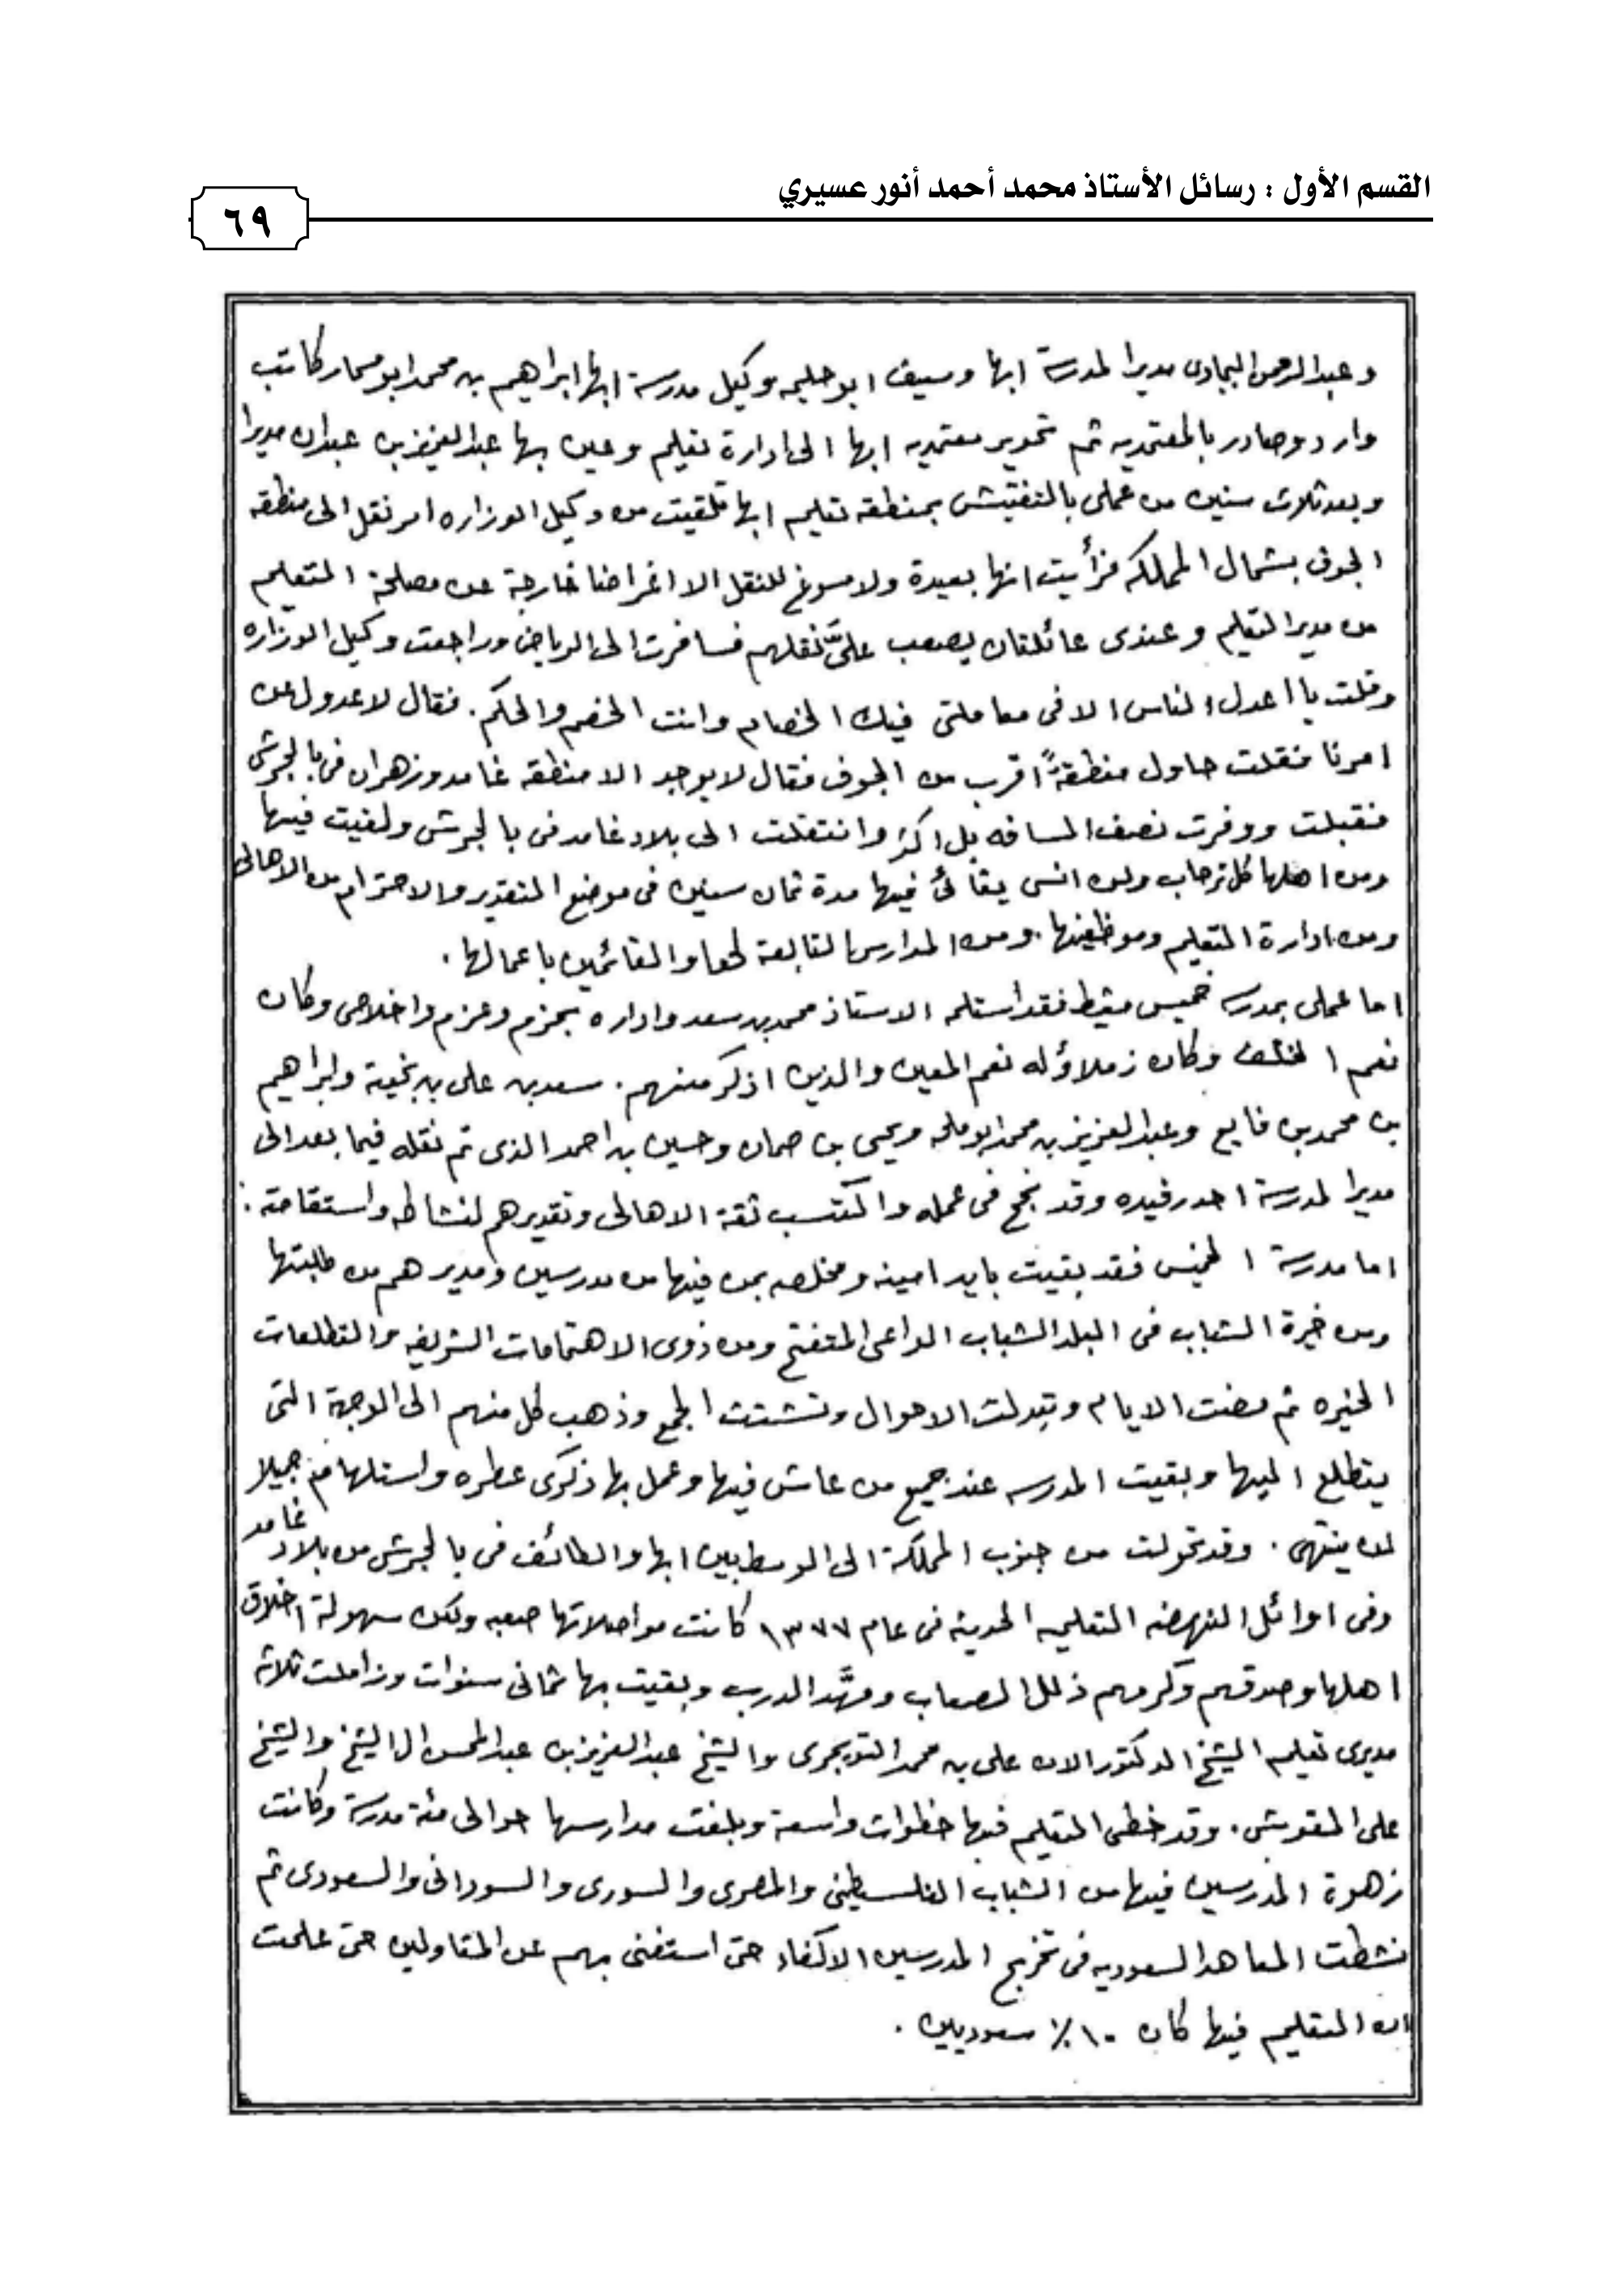 القسم الأول : رسائل الأستاذ محمد أحمد أنور عسيري
٦٩
وعبدالرحمن البجادى مديرا لمدرسة ابها وسيف ابو حليمه وكيل مدرسة ابها ابراهيم بن محمد ابو مسمار كاتب
وارد وصادر بالمعتمديه ثم تحوير معتمديه ابها الى ادارة تعليم وعين بها عبدالعزيز بن عبدان مديرا
وبعد ثلاث سنين من عملى بالتفتيش بمنطقه تعليم ابها تلقيت من وكيل الوزاره امر نقل الى منطقه
الجوف بشمال المملكه فرأيت انها بعيدة ولا مسوغ للنقل الا اغراضا خارجة عن مصلحة التعليم
من مدير التعليم وعندى عائلتان يصعب علىّ نقلهم فسافرت الى الرياض وراجعت وكيل الوزاره
وقلت يا اعدل الناس الا فى معاملتى فيك الخصام وانت الخصم والحكم . فقال لا عدول عن
امرنا فقلت حاول منطقةً اقرب من الجوف فقال لا يوجد الا منطقه غامد وزهران فى بالجرشى
فقبلت ووفرت نصف المسافه بل اكثر وانتقلت الى بلاد غامد فى بالجرشى ولقيت فيها
ومن اهلها كل ترحاب ولن انسى بقائى فيها مدة ثمان سنين فى موضع التقدير والاحترام من الاهالى
ومن ادارة التعليم وموظفيها . ومن المدارس التابعة لها والقائمين باعمالها .
اما عملى بمدرسه خميس مشيط فقد استلمه الاستاذ محمد بن سعد واداره بحزم وعزم واخلاص وكان
نعم الخلف وكان زملاؤه له نعم المعين والذين اذكر منهم . سعد بن على بن نخية وابراهيم
بن محمد بن فايع وعبدالعزيز بن محمد ابو ملحه ويحيى بن حمان وحسين بن احمد الذى تم نقله فيما بعد الى
مديرا لمدرسة احد رفيده وقد نجح فى عمله واكتسب ثقة الاهالى وتقديرهم لنشاطه واستقامته :
اما مدرسة الخميس فقد بقيت بايد امينه ومخلصه بمن فيها من مدرسين ومديرهم من طلبتها
ومن خيرة الشباب فى البلد الشباب الواعى المتفتح ومن ذوى الاهتمامات الشريفه والتطلعات
الخيره ثم مضت الايام وتبدلت الاحوال وتشتت الجمع وذهب كل منهم الى الوجهة التى
يتطلع اليها وبقيت المدرسه عند جميع من عاش فيها وعمل بها ذكرى عطره واستلهام جميلا
لن ينتهى . وقد تحولت من جنوب المملكة الى الوسط بين ابها والطائف فى بالجرشى من بلاد غامد
وفى اوائل النهضه التعليميه الحديثه فى عام ١٣٧٧ كانت مواصلاتها صعبه ولكن سهولة اخلاق
اهلها وصدقهم وكرمهم ذلل الصعاب ومهَّد الدرب وبقيت بها ثمانى سنوات وزاملت ثلاثه
مديرى تعليم الشيخ الدكتور الان على بن محمد التويجرى والشيخ عبدالعزيز بن عبدالمحسن ال الشيخ والشيخ
على القويشى . وقد خطى التعليم فيها خطوات واسعة وبلغت مدارسها حوالى مئة مدرسة وكانت
زهوة المدرسين فيها من الشباب الفلسطينى والمصرى والسورى والسودانى والسعودى ثم
نشطت المعاهد السعوديه فى تخريج المدرسين الاكفاء حتى استغنى بهم عن المتعاقدين حتى علمت
ان التعليم فيها كان ١٠٠٪ سعوديين .